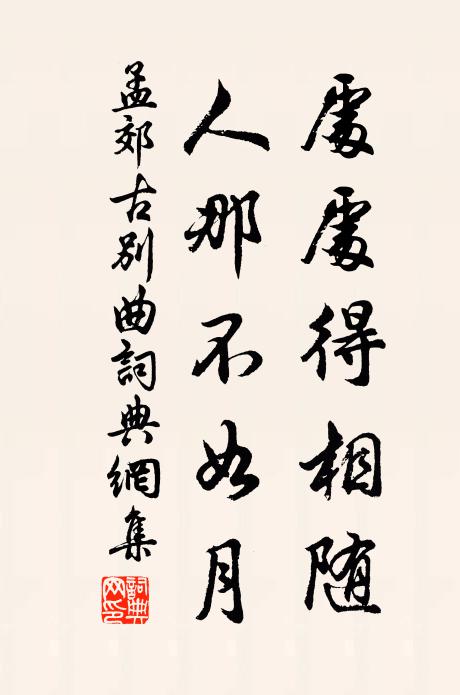 處處得相随
人那不如月
孟郊古别曲詞典網集
詞典
网印